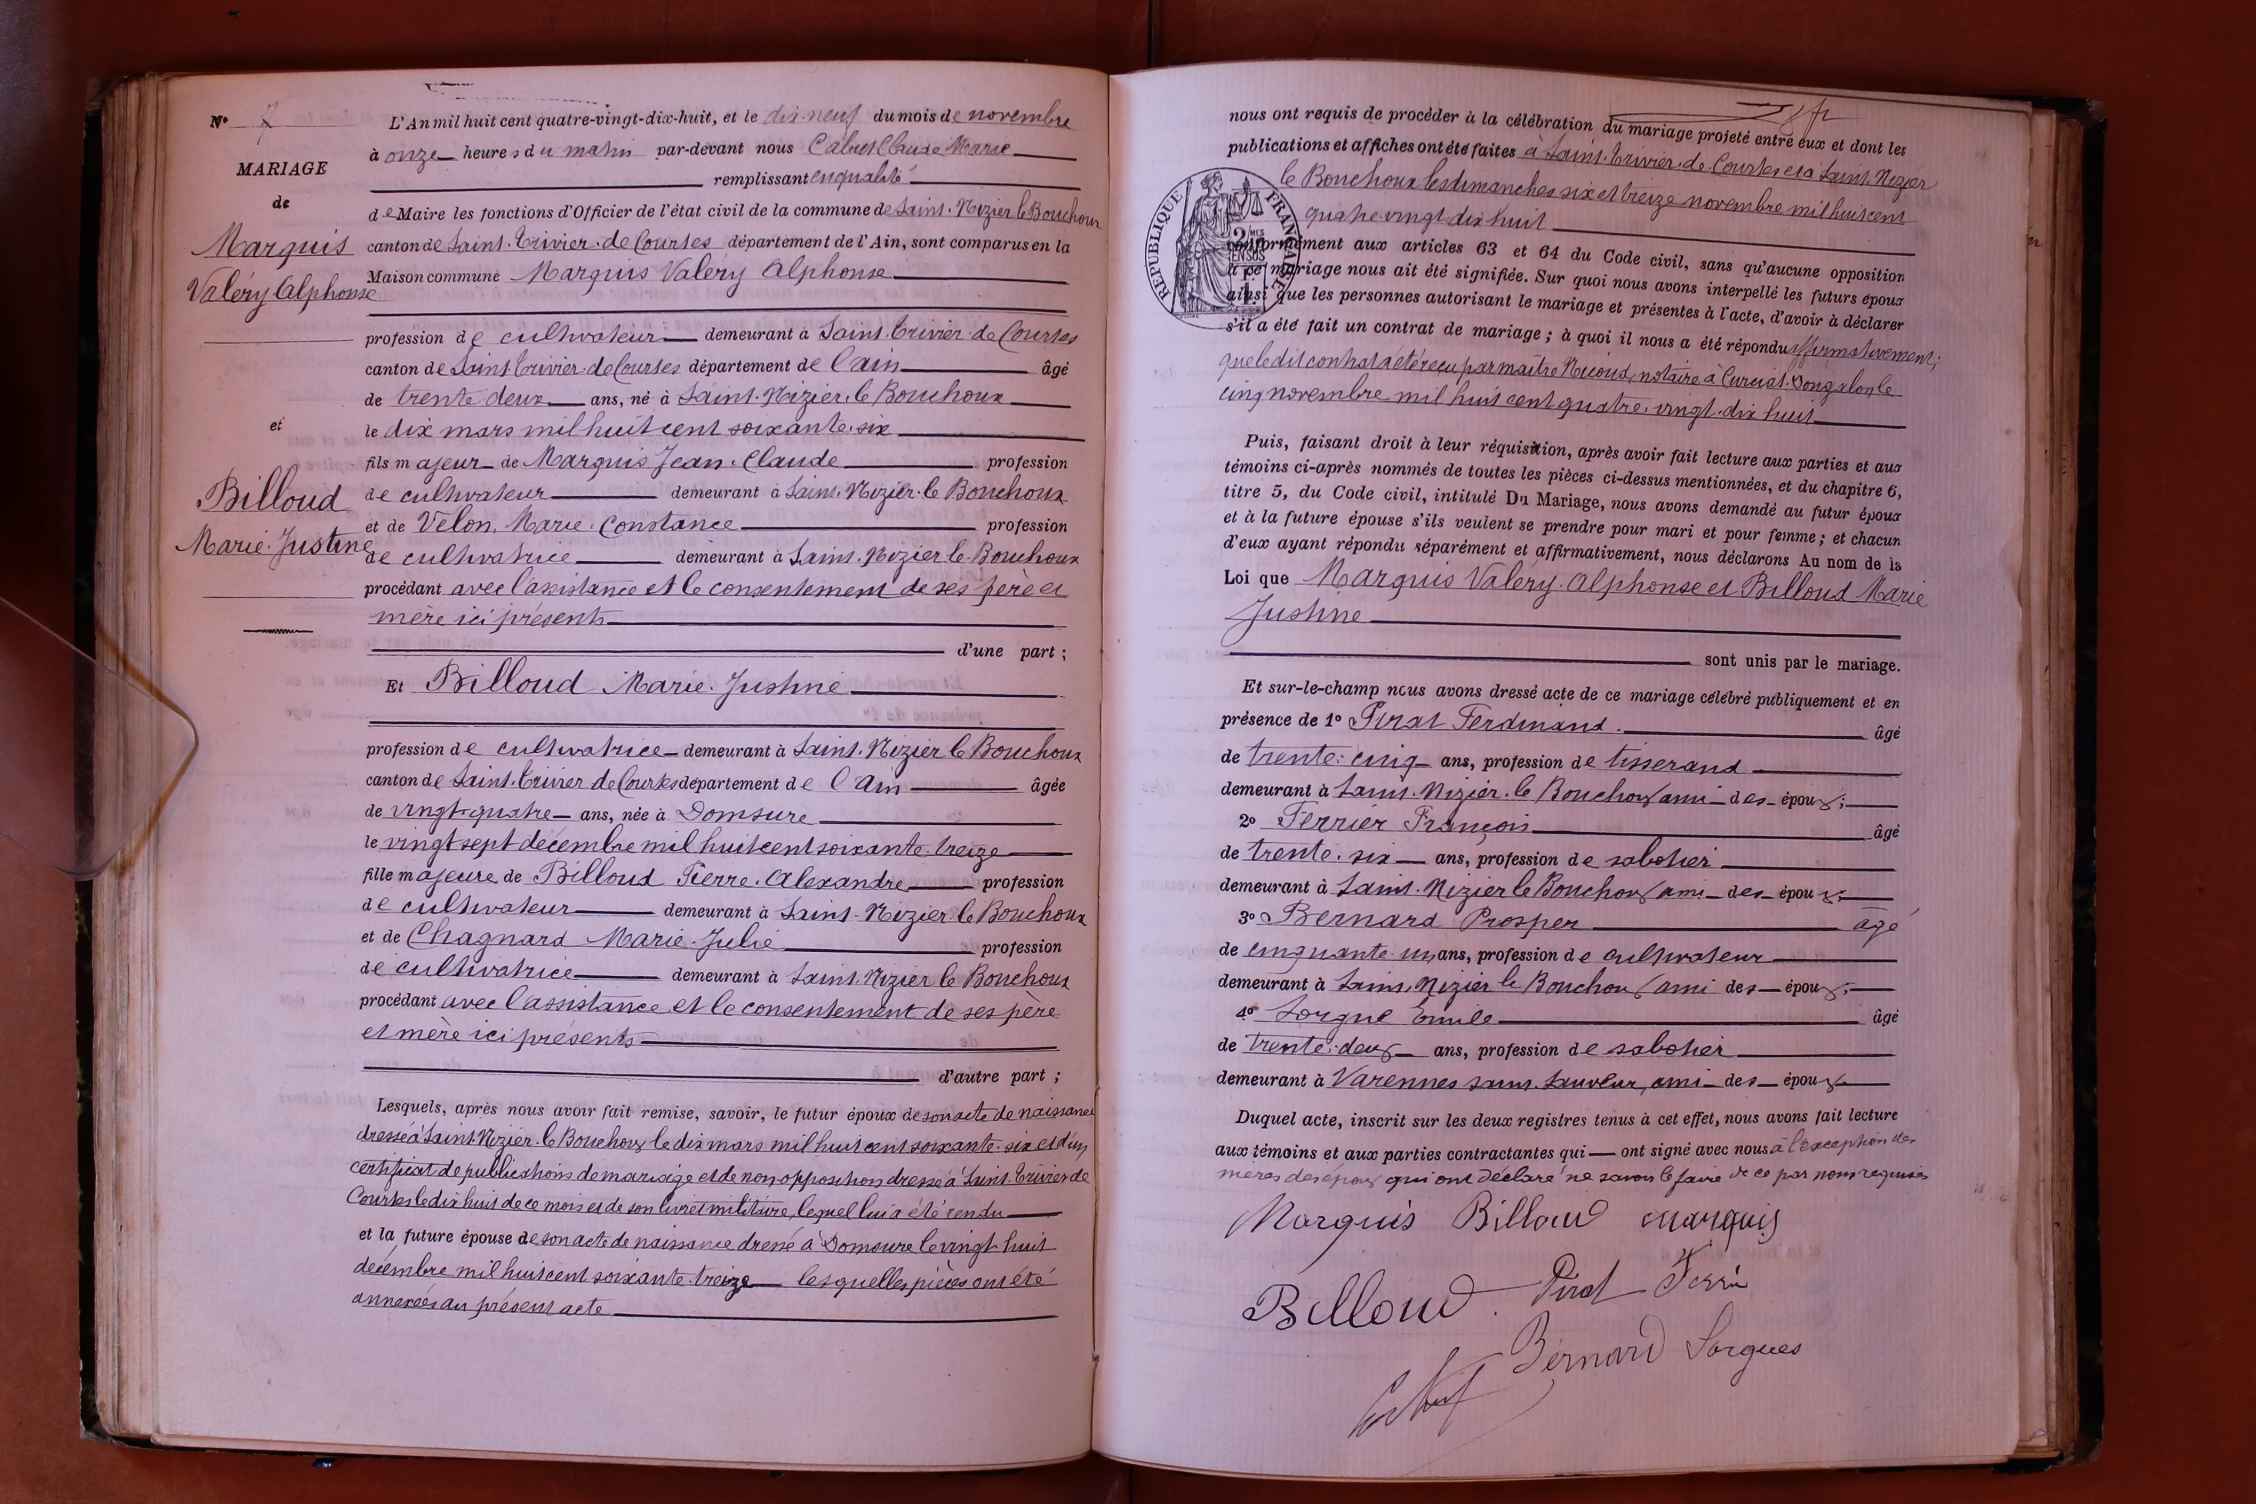 N° 7
MARIAGE
de
Marquis
Valéry Alphonse
et
Billoud
Marie Justine
L'An mil huit cent quatre-vingt-dix-huit, et le dix-neuf du mois de novembre
à onze heures du matin par-devant nous Calvet Claude Marie
remplissant en qualité
de Maire les fonctions d'Officier de l'état civil de la commune de Saint-Nizier le Bouchoux
canton de Saint-Trivier-de Courtes département de l'Ain, sont comparus en la
Maison commune Marquis Valéry Alphonse
profession de cultivateur demeurant à Saint-Trivier-de Courtes
canton de Saint-Trivier-de Courtes département de l'Ain âgé
de trente deux ans, né à Saint-Nizier-le Bouchoux
le dix mars mil huit cent soixante-six
fils majeur de Marquis Jean-Claude profession
de cultivateur demeurant à Saint-Nizier-le Bouchoux
et de Velon, Marie-Constance profession
de cultivatrice demeurant à Saint-Nizier le Bouchoux
procédant avec l'assistance et le consentement de ses père et
mère ici présents
d'une part ;
Et Billoud Marie-Justine
profession de cultivatrice demeurant à Saint-Nizier le Bouchoux
canton de Saint-Trivier de Courtes département de l'Ain âgée
de vingt-quatre ans, née à Domsure
le vingt sept décembre mil huit cent soixante-treize
fille majeure de Billoud Pierre-Alexandre profession
de cultivateur demeurant à Saint-Nizier le Bouchoux
et de Chagnard Marie-Julie profession
de cultivatrice demeurant à Saint-Nizier le Bouchoux
procédant avec l'assistance et le consentement de ses père
et mère ici présents
d'autre part ;
Lesquels, après nous avoir fait remise, savoir, le futur époux de son acte de naissance
dressé à Saint-Nizier-le Bouchoux le dix mars mil huit cent soixante-six et d'un
certificat de publications de mariage et de non opposition dressé à Saint-Trivier de
Courtes le dix huit de ce mois et de son livret militaire, lequel lui a été rendu
et la future épouse de son acte de naissance dressé à Domsure le vingt huit
décembre mil huit cent soixante-treize lesquelles pièces ont été
annexées au présent acte
nous ont requis de procéder à la célébration du mariage projeté entre eux et dont les
publications et affiches ont été faites à Saint-Trivier-de-Courtes et à Saint-Nizier
le Bouchoux les dimanches six et treize novembre mil huit cent
quatre-vingt dix huit
RÉPUBLIQUE FRANÇAISE
conformément aux articles 63 et 64 du Code civil, sans qu'aucune opposition
à ce mariage nous ait été signifiée. Sur quoi nous avons interpellé les futurs époux
ainsi que les personnes autorisant le mariage et présentes à l'acte, d'avoir à déclarer
s'il a été fait un contrat de mariage ; à quoi il nous a été répondu affirmativement ;
que le dit contrat a été reçu par maître Nicoud, notaire à Curciat-Dongalon, le
cinq novembre mil huit cent quatre-vingt-dix huit
Puis, faisant droit à leur réquisition, après avoir fait lecture aux parties et aux
témoins ci-après nommés de toutes les pièces ci-dessus mentionnées, et du chapitre 6,
titre 5, du Code civil, intitulé Du Mariage, nous avons demandé au futur époux
et à la future épouse s'ils veulent se prendre pour mari et pour femme ; et chacun
d'eux ayant répondu séparément et affirmativement, nous déclarons Au nom de la
Loi que Marquis Valéry-Alphonse et Billoud Marie
Justine
sont unis par le mariage.
Et sur-le-champ nous avons dressé acte de ce mariage célébré publiquement et en
présence de 1° Pirat Ferdinand âgé
de trente-cinq ans, profession de tisserand
demeurant à Saint-Nizier-le Bouchoux ami des époux ;
2° Ferrier François âgé
de trente-six ans, profession de sabotier
demeurant à Saint-Nizier le Bouchoux ami des époux ;
3° Bernard Prosper âgé
de cinquante un ans, profession de cultivateur
demeurant à Saint-Nizier le Bouchoux ami des époux ;
4° Sorgue Emile âgé
de trente-deux ans, profession de sabotier
demeurant à Varennes saint Sauveur, ami des époux
Duquel acte, inscrit sur les deux registres tenus à cet effet, nous avons fait lecture
aux témoins et aux parties contractantes qui ont signé avec nous à l'exception des
mères des époux qui ont déclaré ne savoir le faire de ce par nous requises
Marquis Billoud Marquis
Billoud Pirat Ferrier
Bernard Sorgues